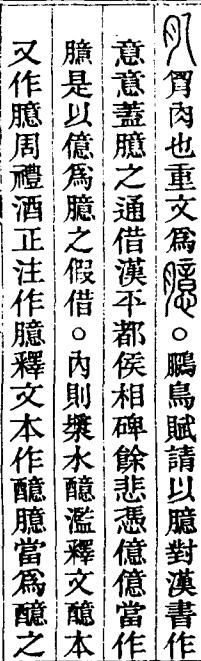 肊胷肉也重文爲臆。鵬鳥賦請以臆對漢書作
意意葢臆之通借漢平都侯相碑餘悲憑億億當作
臆是以億爲臆之假借。內則漿水醷濫釋文醷本
又作臆周禮酒正注作臆釋文本作醷臆當爲醷之